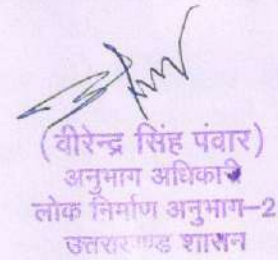 (वीरेन्द्र सिंह पंवार)
अनुभाग अधिकारी
लोक निर्माण अनुभाग–2
उत्तराखण्ड शासन